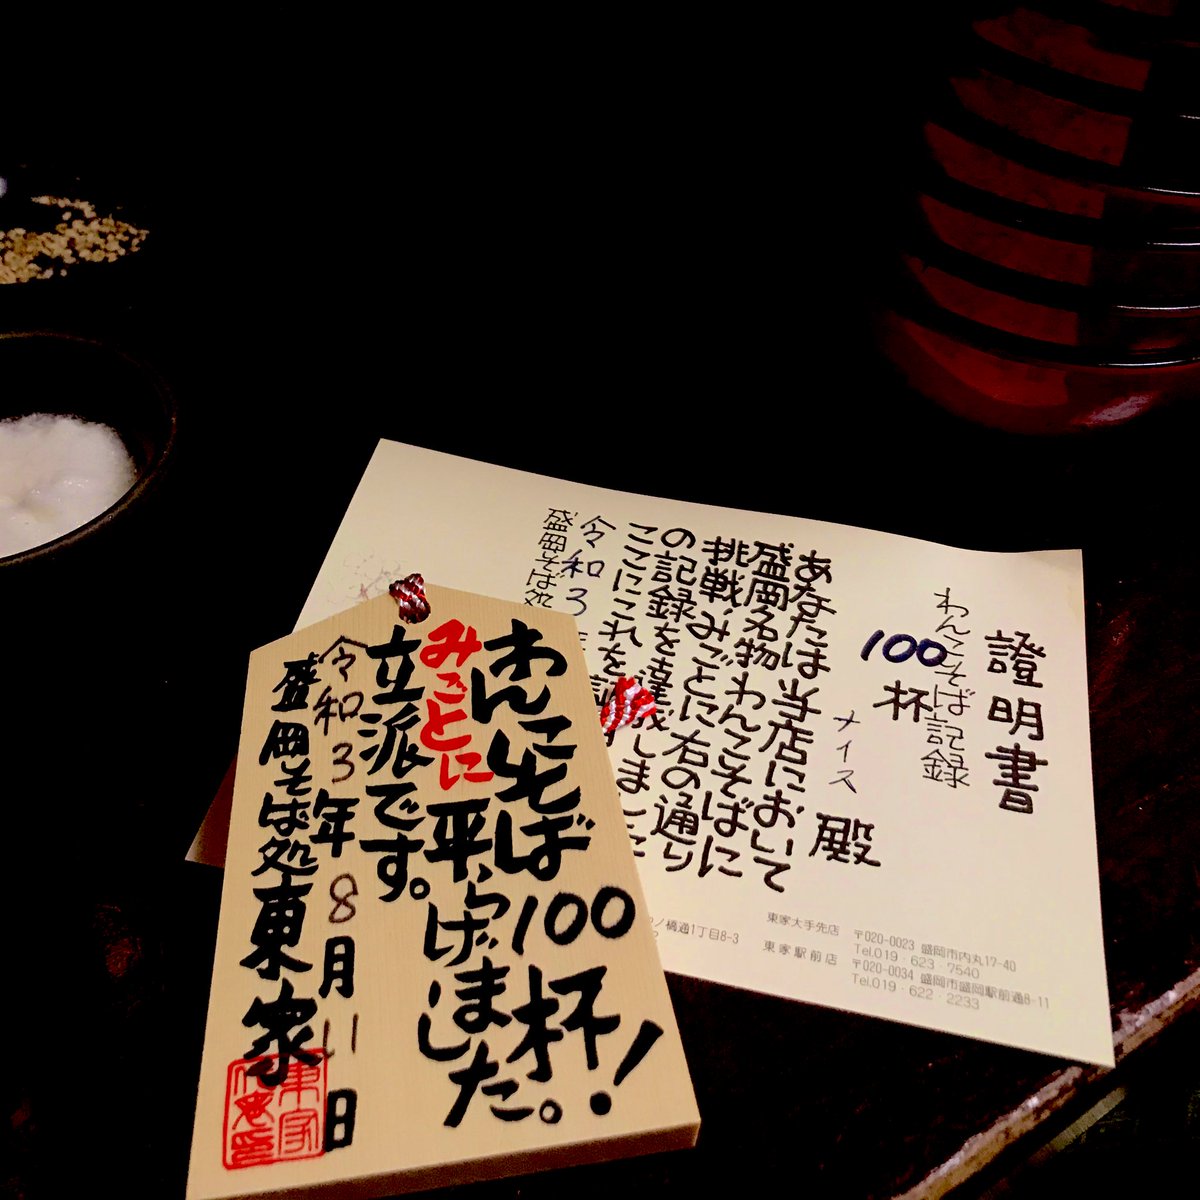 わんこそば100杯!
みごとに平らげました。
立派です。
令和3年8月11日
盛岡そば処東家
證明書
わんこそば記録
100杯
ナイス 殿
あなたは当店において
盛岡名物わんこそばに
挑戦、みごとに右の通り
の記録を達成しました
ここにこれを
令和3
盛岡そば処
橋通1丁目8-3
東家大手先店 〒020-0023 盛岡市内丸17-40
Tel.019・623・7540
東家駅前店 〒020-0034 盛岡市盛岡駅前通8-11
Tel.019・622・2233